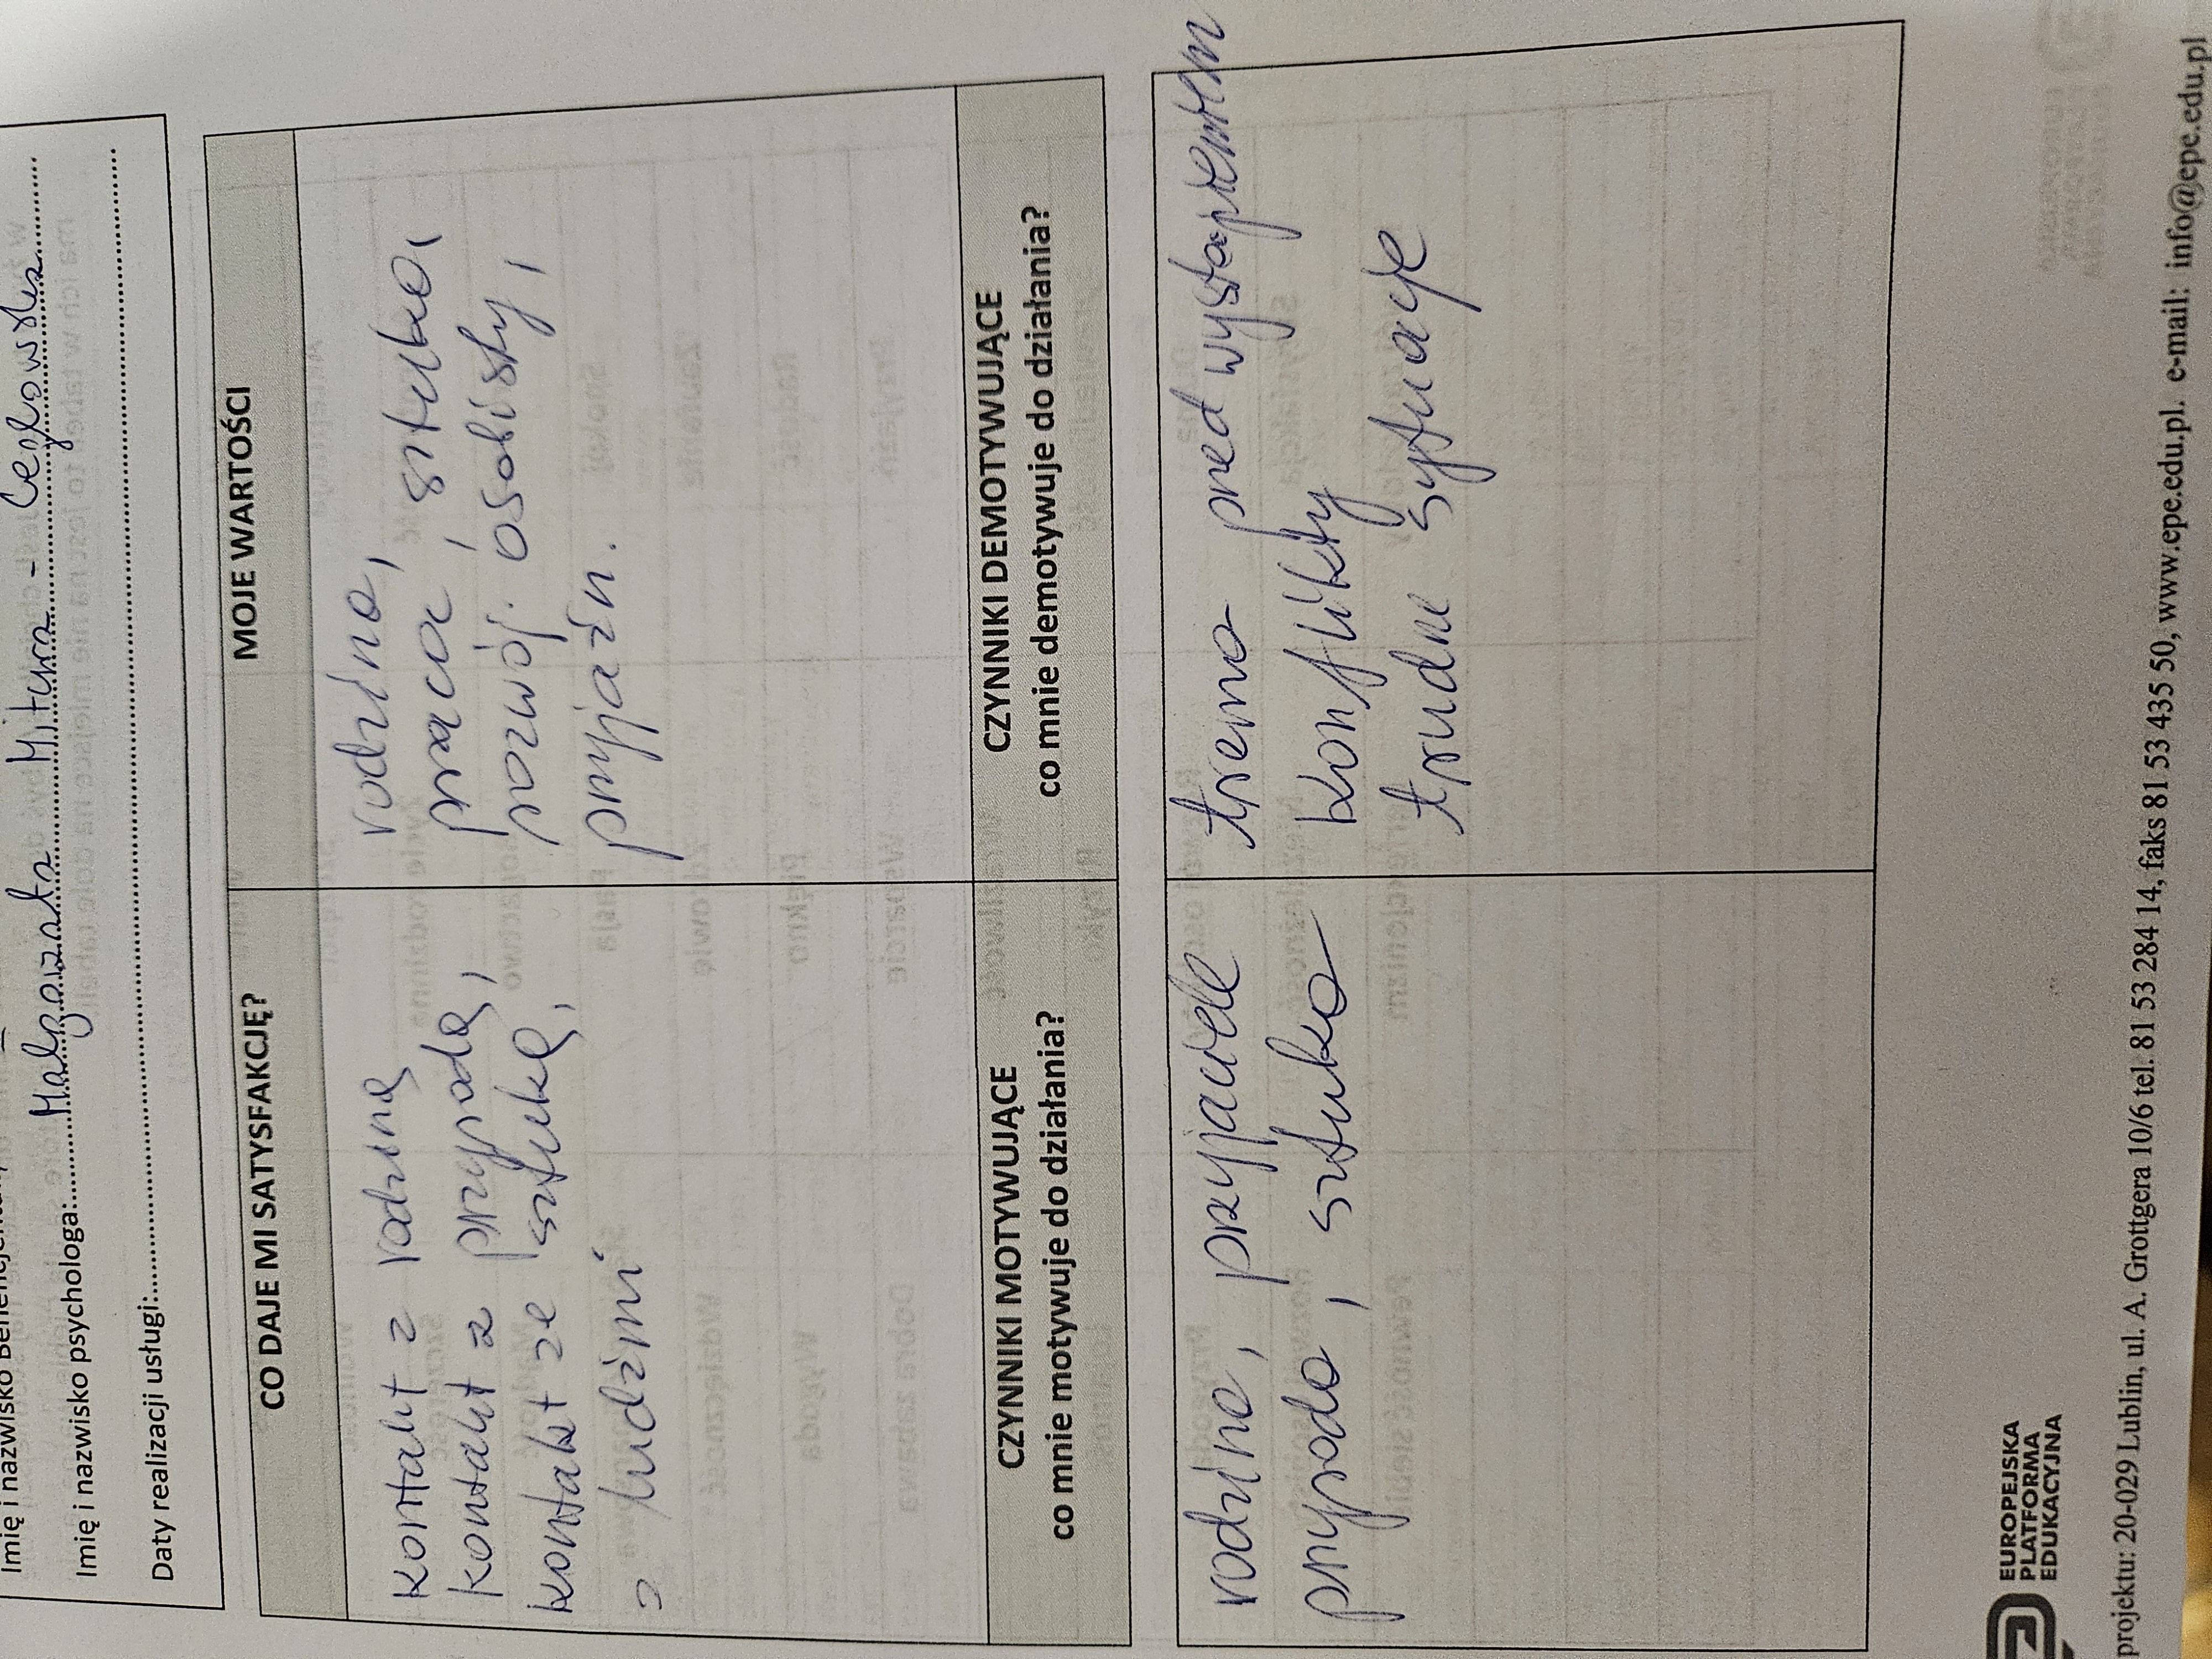 Imię i nazwisko
Imię i nazwisko psychologa:..... Małgorzata Mitura - Cegłowska
Daty realizacji usługi:.....
CO DAJE MI SATYSFAKCJĘ?
kontakt z rodziną
kontakt z przyrodą,
kontakt ze sztuką,
z ludźmi
MOJE WARTOŚCI
rodzina,
praca, sztuka,
rozwój osobisty,
przyjaźń.
CZYNNIKI MOTYWUJĄCE
co mnie motywuje do działania?
CZYNNIKI DEMOTYWUJĄCE
co mnie demotywuje do działania?
rodzina, przyjaciele
przyroda, sztuka
trema przed wystąpieniem
Konflikty
trudne sytuacje
EUROPEJSKA
PLATFORMA
EDUKACYJNA
projektu: 20-029 Lublin, ul. A. Grottgera 10/6 tel. 81 53 284 14, faks 81 53 435 50, www.epe.edu.pl. e-mail: info@epe.edu.pl